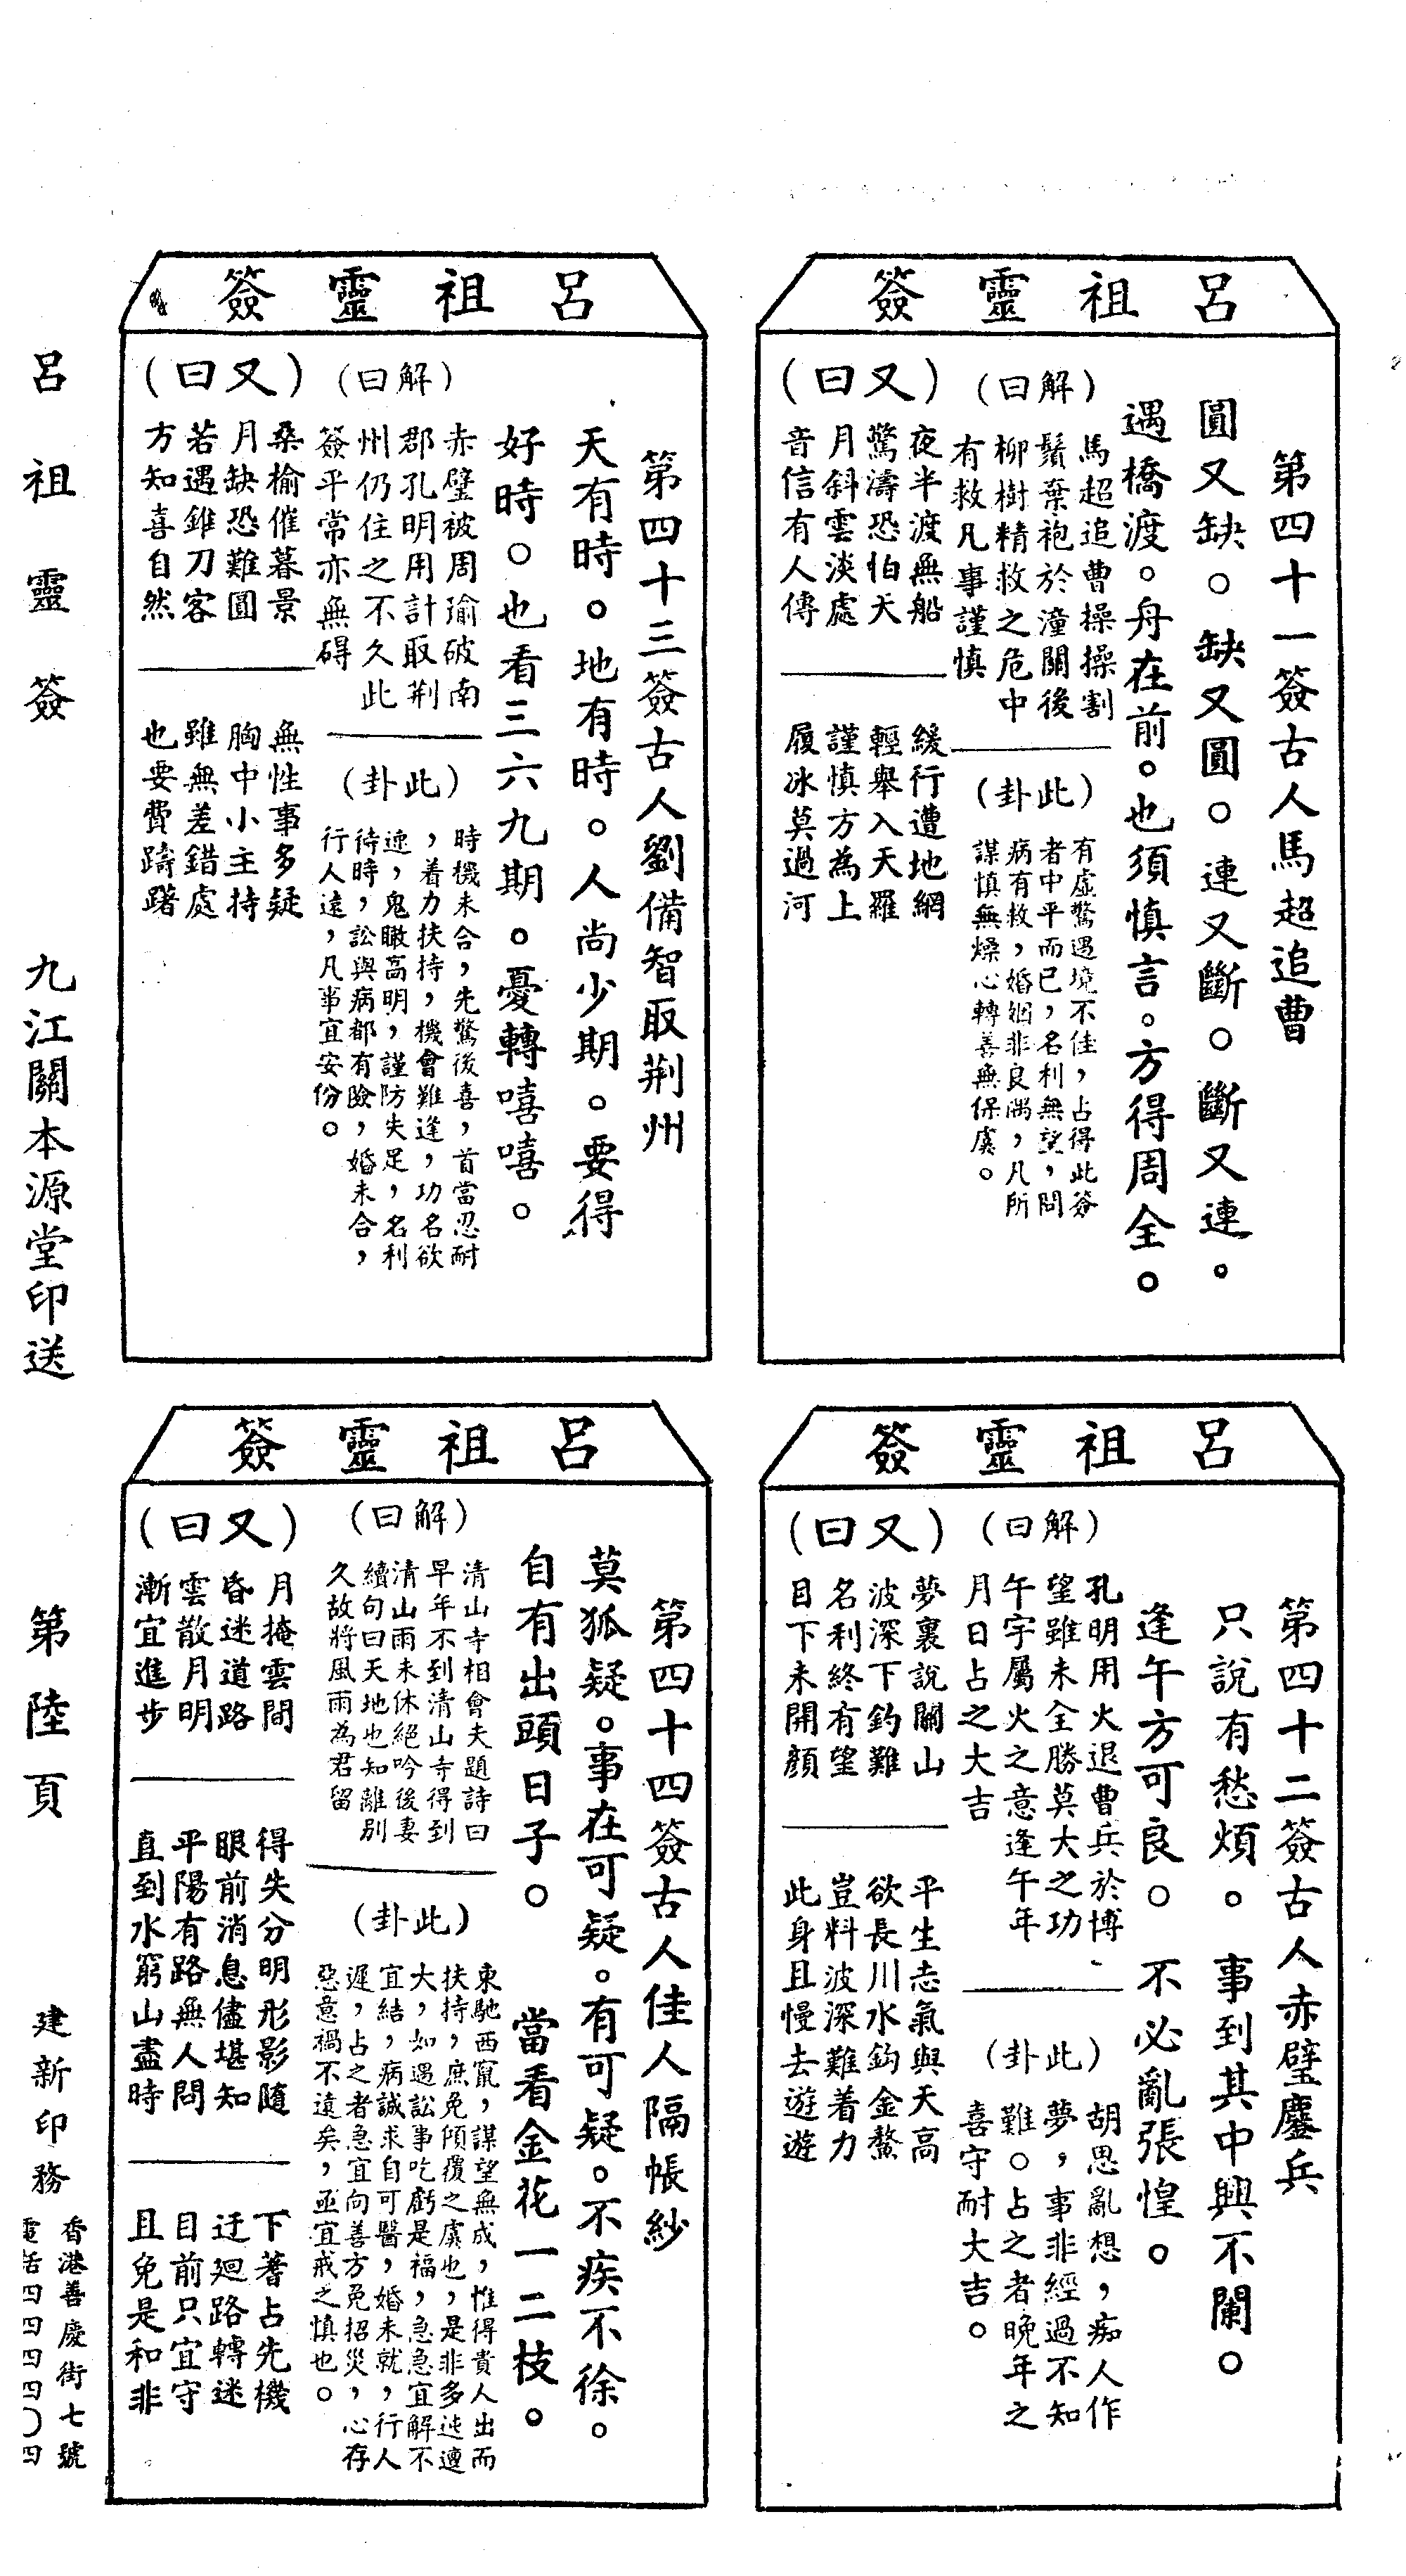 呂祖靈簽
第四十一簽古人馬超追曹
圓又缺。缺又圓。連又斷。斷又連。
遇橋渡。舟在前。也須慎言。方得周全。
(解曰)
馬超追曹操操割
鬚棄袍於潼關後
柳樹精救之危中
有救凡事謹慎
(此卦)
有虛驚遇境不佳，占得此簽
者中平而已，名利無望，問
病有救，婚姻非良偶，凡所
謀慎無燥心轉善無保虞。
(又曰)
夜半渡無船
驚濤恐怕天
月斜雲淡處
音信有人傳
緩行遭地網
輕舉入天羅
謹慎方為上
履冰莫過河
呂祖靈簽
第四十二簽古人赤璧鏖兵
只說有愁煩。事到其中興不闌。
逢午方可良。不必亂張惶。
(解曰)
孔明用火退曹兵於博
望雖未全勝莫大之功
午宇屬火之意逢午年
月日占之大吉
(此卦)
胡思亂想，痴人作
夢，事非經過不知
難。占之者晚年之
喜守耐大吉。
(又曰)
夢裏說關山
波深下釣難
名利終有望
目下未開顏
平生志氣與天高
欲長川水鈎金鰲
豈料波深難着力
此身且慢去遊遊
呂祖靈簽
第四十三簽古人劉備智取荆州
天有時。地有時。人尚少期。要得
好時。也看三六九期。憂轉嘻嘻。
(解曰)
赤璧被周瑜破南
郡孔明用計取荆
州仍住之不久此
簽平常亦無碍
(此卦)
時機未合，先驚後喜，首當忍耐
，着力扶持，機會難逢，功名欲
速，鬼瞰高明，謹防失足，名利
待時，訟與病都有險，婚未合，
行人遠，凡事宜安份。
(又曰)
桑榆催暮景
月缺恐難圓
若遇錐刀客
方知喜自然
無性事多疑
胸中小主持
雖無差錯處
也要費躊躇
呂祖靈簽
第四十四簽古人佳人隔帳紗
莫狐疑。事在可疑。有可疑。不疾不徐。
自有出頭日子。當看金花一二枝。
(解曰)
清山寺相會夫題詩曰
早年不到清山寺得到
清山雨未休絕吟後妻
續句曰天地也知離別
久故將風雨為君留
(此卦)
東馳西竄，謀望無成，惟得貴人出而
扶持，庶免傾覆之虞也，是非多迍邅
大，如遇訟事吃虧是福，急急宜解不
宜結，病誠求自可醫，婚未就，行人
遲，占之者急宜向善方免招災，心存
惡意禍不遠矣，亟宜戒之慎也。
(又曰)
月掩雲間
昏迷道路
雲散月明
漸宜進步
得失分明形影隨
眼前消息儘堪知
平陽有路無人問
直到水窮山盡時
下著占先機
迂廻路轉迷
目前只宜守
且免是和非
呂祖靈簽
九江關本源堂印送
第陸頁
建新印務
香港善慶街七號
電話四四四四〇四